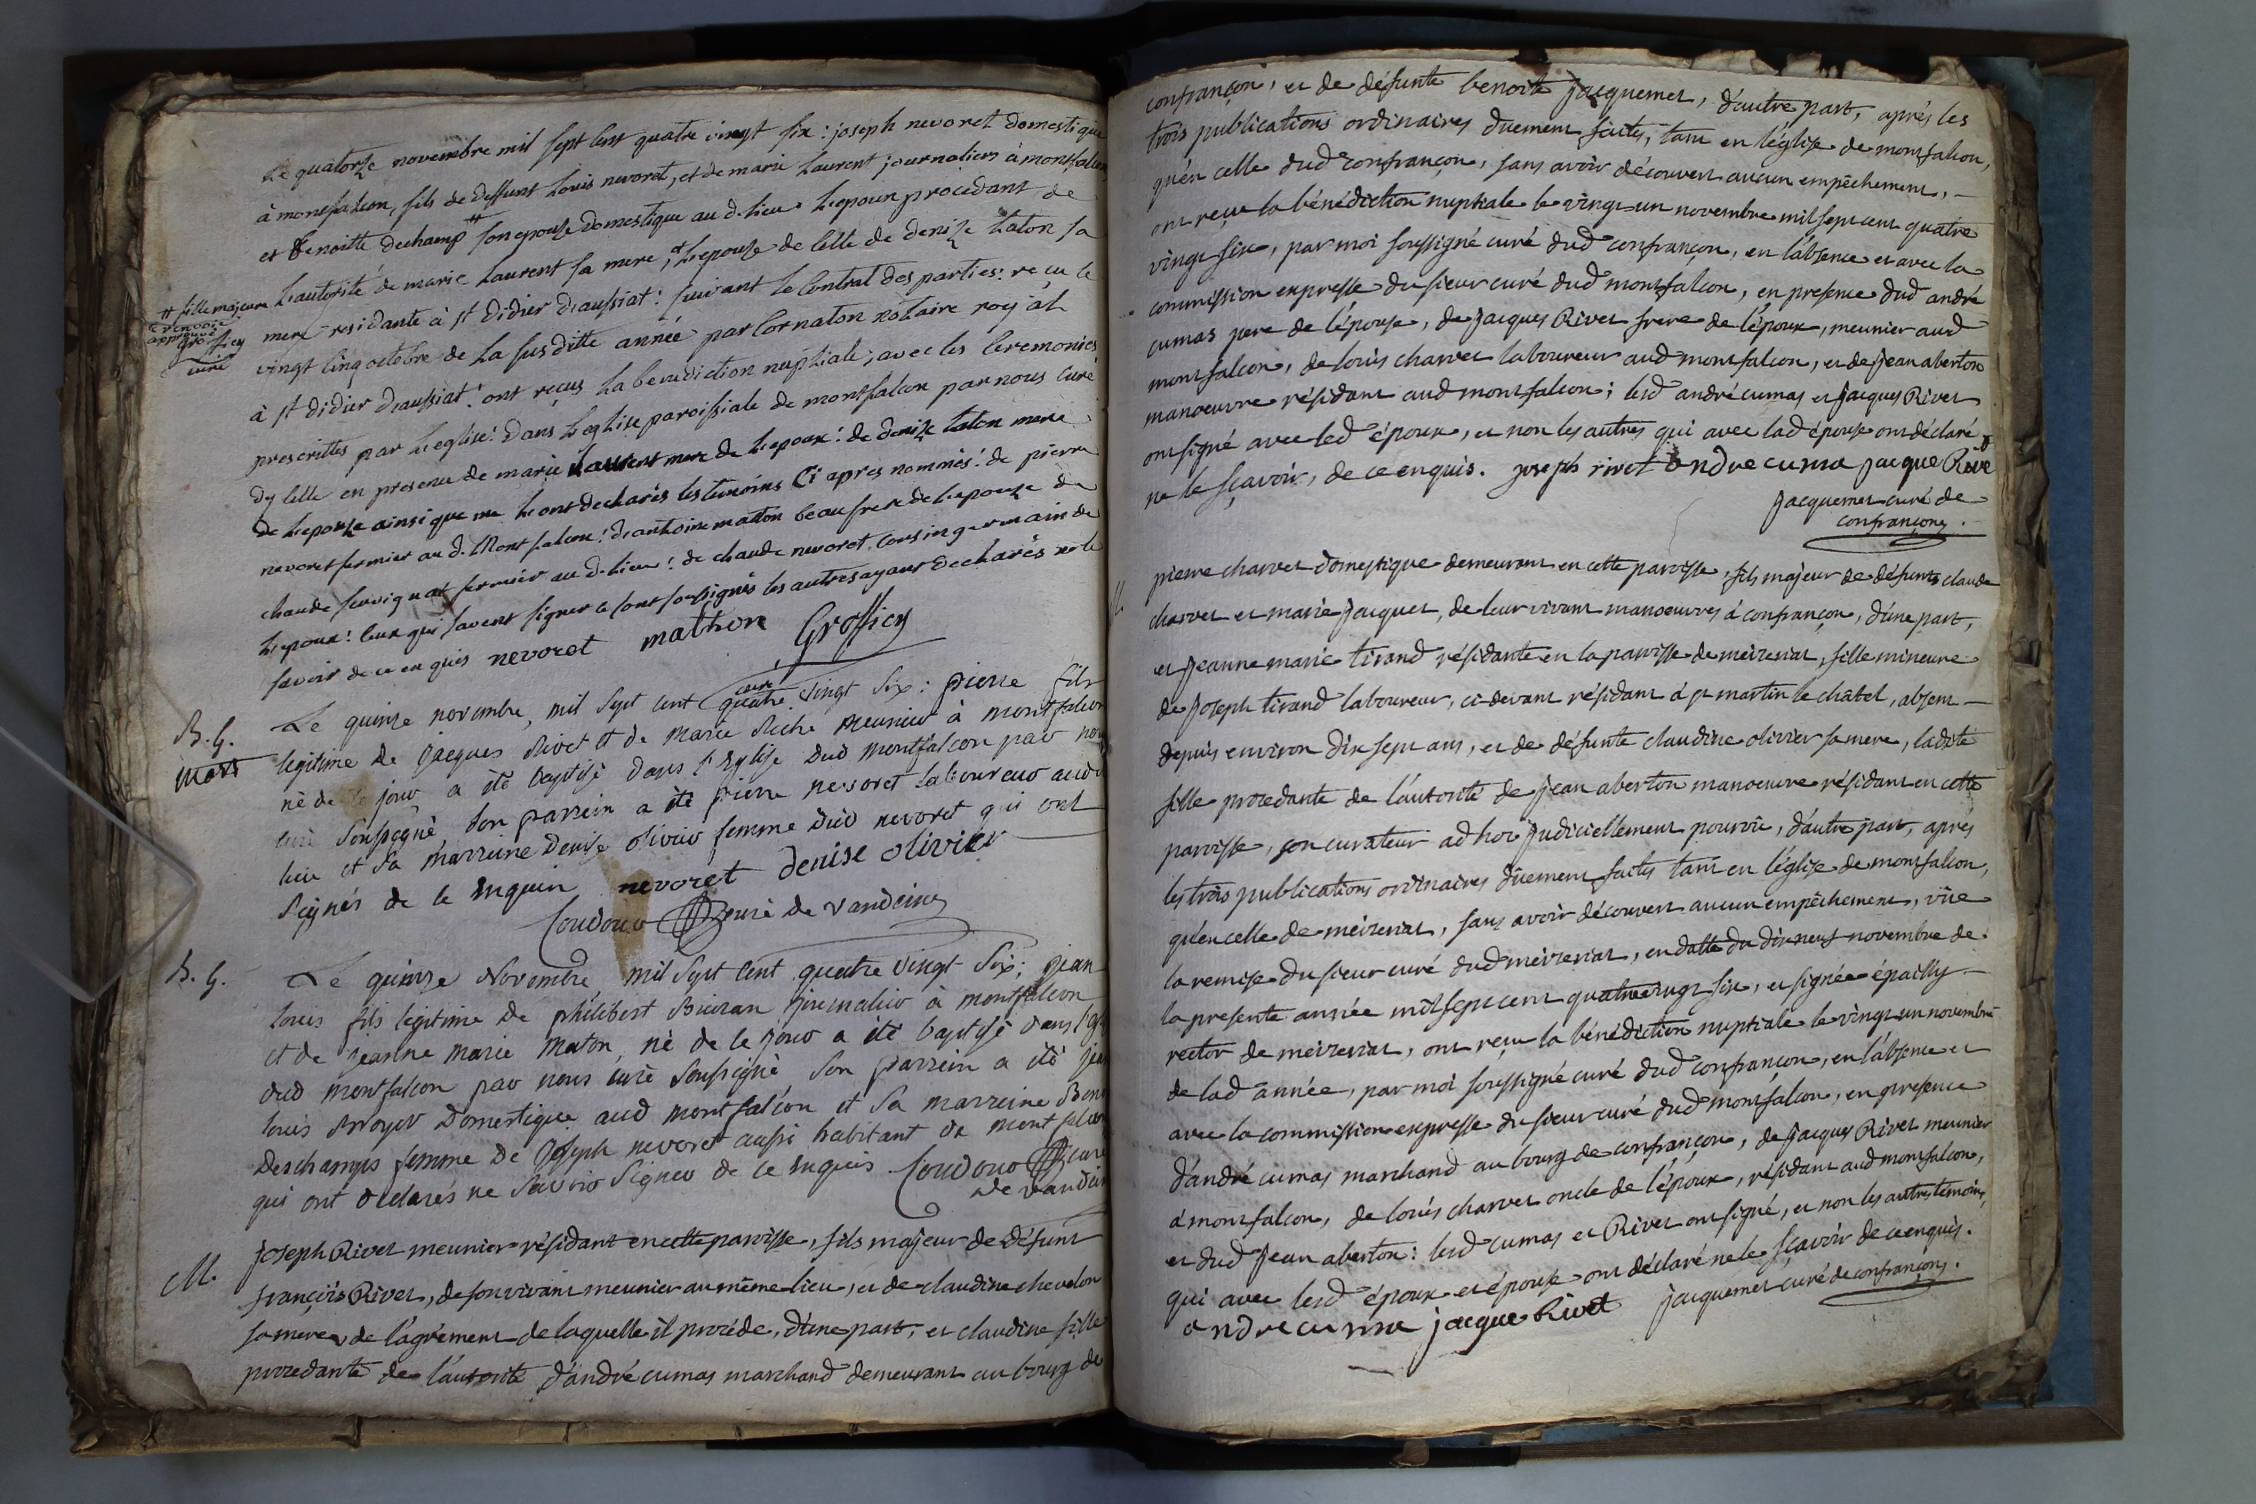 Le quatorze novembre mil sept cent quatre vingt six : joseph nevoret domestique
à montfalcon, fils de deffunt Louis nevoret, et de marie Laurent journaliers à montfalcon
et Benoitte dechamp # son epouse Domestique au d. lieu : Lepoux procedant de
# fille majeure
renvoie
approuvé
Groffiey
curé
Lautorité de marie Laurent sa mere, et Lepouse de celle de denize taton sa
mere residante à st didier daussiat : suivant le Contrat des parties : reçu le
vingt cinq octobre de la susditte année par Cornaton Notaire royal
à st didier daussiat : ont reçus La benediction nuptiale, avec les Ceremonies
prescrittes par Leglise : dans Leglise paroissiale de montfalcon par nous curé
dy celle en presence de marie Laurent mere de Lepoux : de denize taton mere
de Lepouse ainsi que me Lont declarés les temoins Ci apres nommés : de pierre
nevoret fermier au d. Montfalcon : dantoine matton beaufrere de Lepouze de
claude servignat fermier au d. lieu : de claude nevoret Cousin germain de
Lepoux : Ceux qui savent signer se sont soussignés les autres ayant declarés ne le
savoir de ce en quis nevoret mathon Groffiey
curé
B. G.
mort
Le quinze novembre, mil sept cent quatre vingt six : pierre fils
legitime de jacques Rivet et de marie Riche meunier à montfalcon
né de ce jour a été baptisé dans l'Eglise dud montfalcon par nous
curé soussigné son parrein a été pierre nevoret laboureur aud
lieu et sa marreine Denise olivier femme dud nevoret qui ont
signés de ce enquis nevoret denise olivier
Coudour curé de vandeins
B. G.
Le quinze Novembre mil sept cent quatre vingt six ; jean
louis fils legitime de philibert Buiran journalier à montfalcon
et de jeanne marie maton, né de ce jour a été baptisé dans l'egl
dud montfalcon par nous curé soussigné son parrein a été jean
louis Broyer Domestique aud montfalcon et sa marreine Benoi
Deschamps femme de joseph nevoret aussi habitant de montfalcon
qui ont declarés ne savoir signer de ce enquis Coudour curé
de vandeins
M.
joseph Rivet meunier résidant en cette paroisse, fils majeur de défunt
françois Rivet, de son vivant meunier au même lieu, et de claudine chevalon
sa mere, de l'agrément de laquelle il procéde, d'une part, et claudine fille
procedante de l'autorité d'andré cumas marchand demeurant au bourg de
confrançon, et de défunte benoite jacquemet, d'autre part, aprés les
trois publications ordinaires duement faites, tant en l'église de montfalcon,
qu'en celle dud confrançon, sans avoir découvert aucun empêchement,
ont reçu la bénédiction nuptiale le vingt un novembre mil sept cent quatre
vingt six, par moi soussigné curé dud confrançon, en l'absence et avec la
commission expresse du sieur curé dud montfalcon, en presence dud andré
cumas pere de l'épouse, de jacques Rivet frere de l'époux, meunier aud
montfalcon, de loüis charvet laboureur aud montfalcon, et de jean aberton
manoeuvre résidant aud montfalcon ; lesd andré cumas et jacques Rivet
ont signé avec led époux, et non les autres qui avec lad épouse ont déclaré
ne le sçavoir, de ce enquis. joseph rivet andre cuma jacque Rive
jacquemet curé de
confrançon.
M.
pierre charvet domestique demeurant en cette paroisse, fils majeur de défunts claude
charvet et marie jacquet, de leur vivant manoeuvres à confrançon, d'une part,
et jeanne marie tirand résidante en la paroisse de meizeriat, fille mineure
de joseph tirand laboureur, ci-devant résidant à st martin le châtel, absent
depuis environ dix sept ans, et de défunte claudine olivier sa mere, ladite
fille procedante de l'autorité de jean aberton manoeuvre résidant en cette
paroisse, son curateur ad hoc judiciellement pourvû, d'autre part, aprés
les trois publications ordinaires dûement faites tant en l'église de montfalcon,
qu'en celle de meizeriat, sans avoir découvert aucun empêchement, vüe
la remise du sieur curé dud meizeriat, en datte du dix neuf novembre de
la presente année mil sept cent quatre vingt six, et signée épailly
rector de meizeriat, ont reçu la bénédiction nuptiale le vingt un novembre
de lad année, par moi soussigné curé dud confrançon, en l'absence et
avec la commission expresse du sieur curé dud montfalcon, en presence
d'andré cumas marchand au bourg de confrançon, de jacques Rivet meunier
à montfalcon, de loüis charvet oncle de l'époux, résidant aud montfalcon,
et dud jean aberton : lesd cumas et Rivet ont signé, et non les autres temoins,
qui avec lesd époux et épouse ont déclaré ne le sçavoir de ce enquis.
andre cuma jacque Rivet jacquemet curé de confrançon.